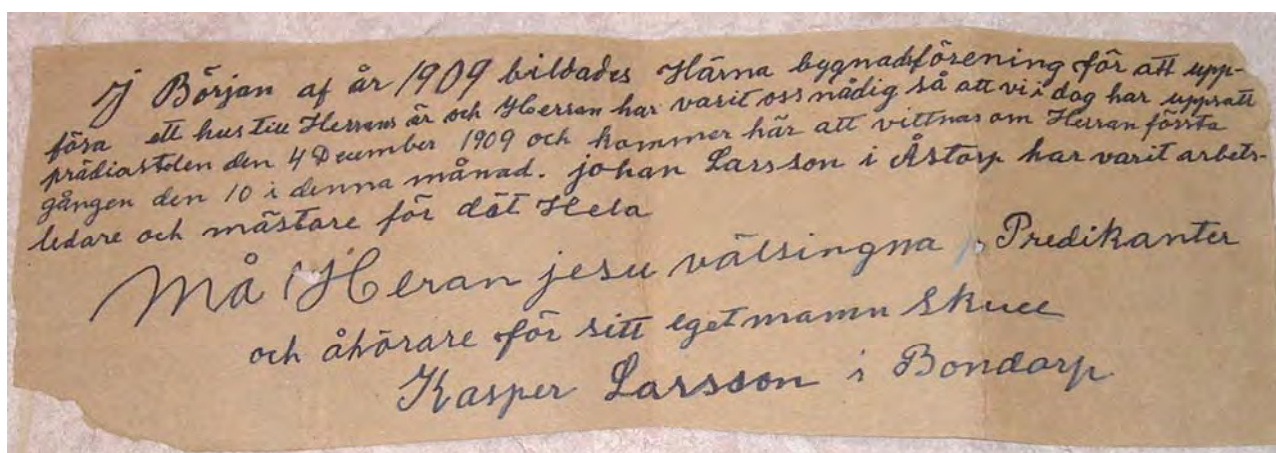 J Början af år 1909 bildades Härna bygnadsförening för att upp-
föra ett hus till Herrans är och Herran har varit oss nådig så att vi i dag har uppsatt
prädiastolen den 4 December 1909 och kommer här att vittnas om Herran första
gången den 10 i denna månad. johan Larsson i Åstarp har varit arbets-
ledare och mästare för dät Hela
Må Heran jesu välsingna Predikanter
och åhörare för sitt eget namn Skull
Kasper Larsson i Bondarp